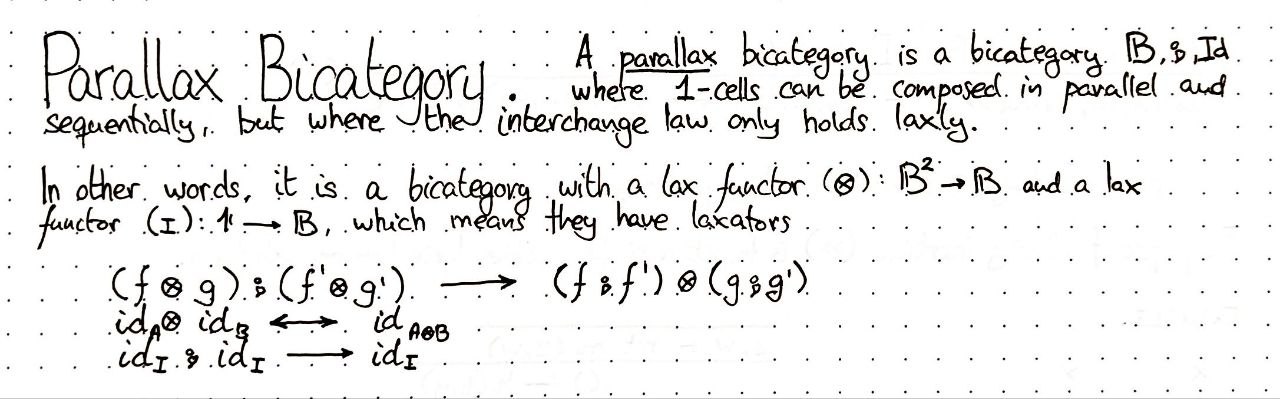 Parallax Bicategory. A parallax bicategory is a bicategory 𝔹, ⨾, Id
where 1-cells can be composed in parallel and
sequentially, but where the interchange law only holds laxly.
In other words, it is a bicategory with a lax functor (⊗): 𝔹² → 𝔹 and a lax
functor (I): 1 → 𝔹, which means they have laxators
(f ⊗ g) ⨾ (f' ⊗ g') ⟶ (f ⨾ f') ⊗ (g ⨾ g')
id_A ⊗ id_B ⟷ id_{A⊗B}
id_I ⨾ id_I ⟶ id_I